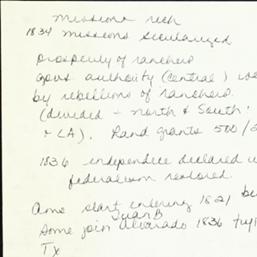 Missions rich
1834 missions secularized
prosperity of ranchero
govt authority (central) we
by rebellions of rancheros.
(divided - North & South
& LA). Land grants 500/
1836 independence declared
federalism restored.
Ams start entering 1821
Juan B
Some join Alvarado 1836
Tx